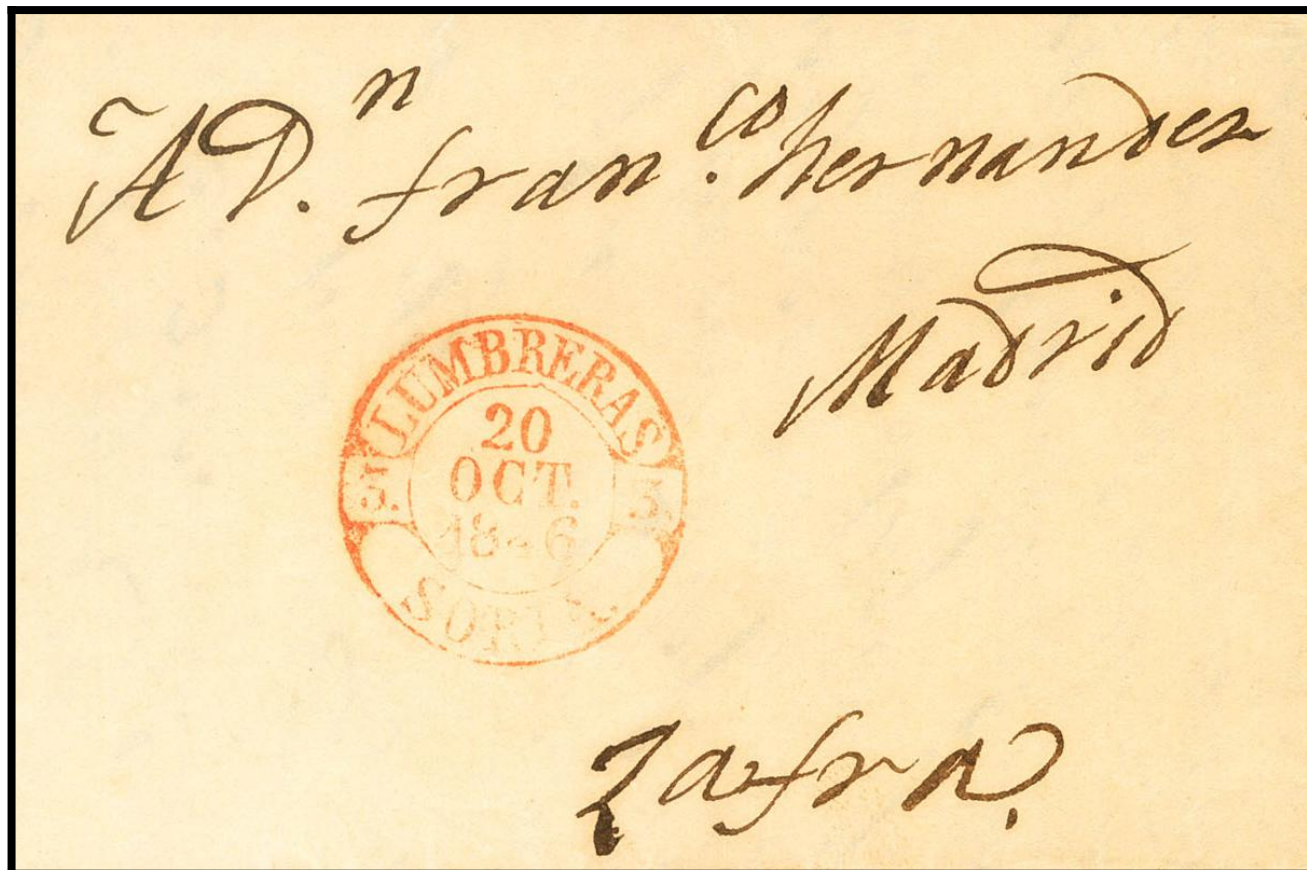 A D.n fran.co hernandez
Madrid
LUMBRERAS
20
OCT.
18_6
3
SORIA
Zafra.